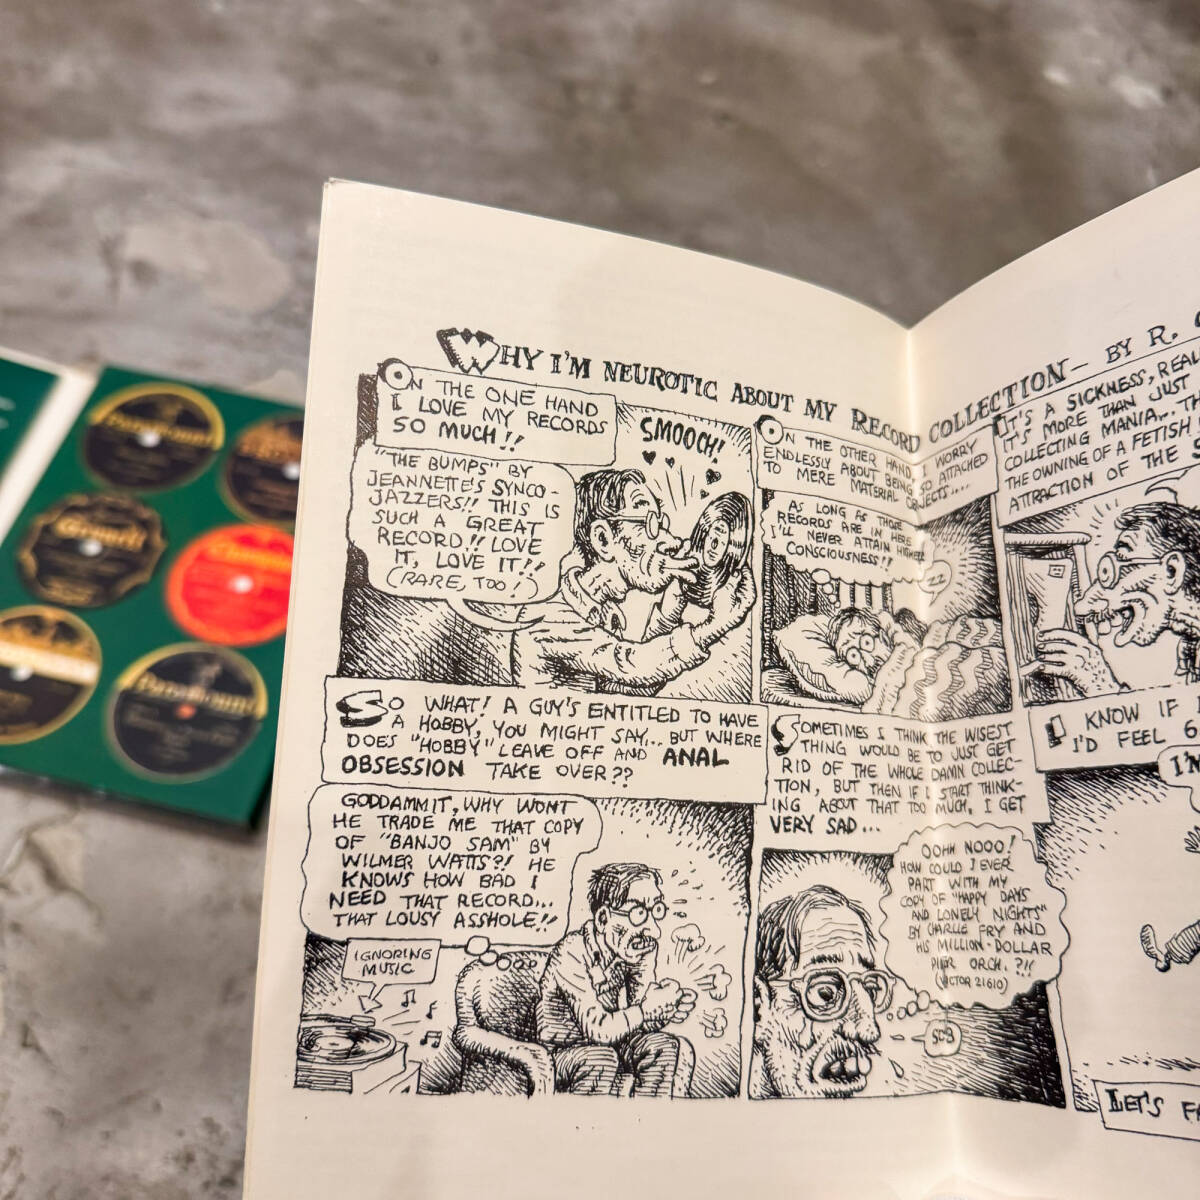 WHY I'M NEUROTIC ABOUT MY RECORD COLLECTION — BY R.
ON THE ONE HAND
I LOVE MY RECORDS
SO MUCH!!
"THE BUMPS" BY
JEANNETTE'S SYNCO-
JAZZERS!! THIS IS
SUCH A GREAT
RECORD!! LOVE
IT, LOVE IT!!
(RARE, TOO!)
SMOOCH!
ON THE OTHER HAND I WORRY
ENDLESSLY ABOUT BEING SO ATTACHED
TO MERE MATERIAL OBJECTS....
AS LONG AS THOSE
RECORDS ARE IN HERE
I'LL NEVER ATTAIN HIGHER
CONSCIOUSNESS!!
ZZ
IT'S A SICKNESS, REAL
IT'S MORE THAN JUST
COLLECTING MANIA... TH
THE OWNING OF A FETISH
ATTRACTION OF THE S
SO WHAT! A GUY'S ENTITLED TO HAVE
A HOBBY, YOU MIGHT SAY... BUT WHERE
DOES "HOBBY" LEAVE OFF AND ANAL
OBSESSION TAKE OVER??
GODDAMMIT, WHY WON'T
HE TRADE ME THAT COPY
OF "BANJO SAM" BY
WILMER WATTS?! HE
KNOWS HOW BAD I
NEED THAT RECORD...
THAT LOUSY ASSHOLE!!
IGNORING
MUSIC
SOMETIMES I THINK THE WISEST
THING WOULD BE TO JUST GET
RID OF THE WHOLE DAMN COLLEC-
TION, BUT THEN IF I START THINK-
ING ABOUT THAT TOO MUCH, I GET
VERY SAD...
OOHH NOOO!
HOW COULD I EVER
PART WITH MY
COPY OF "HAPPY DAYS
AND LONELY NIGHTS"
BY CHARLIE FRY AND
HIS MILLION-DOLLAR
PIER ORCH.?!!
(VICTOR 21610)
SOB
I KNOW IF I
I'D FEEL 6
I'M
LET'S FA
Paramount
Gennett
Champion
Paramount